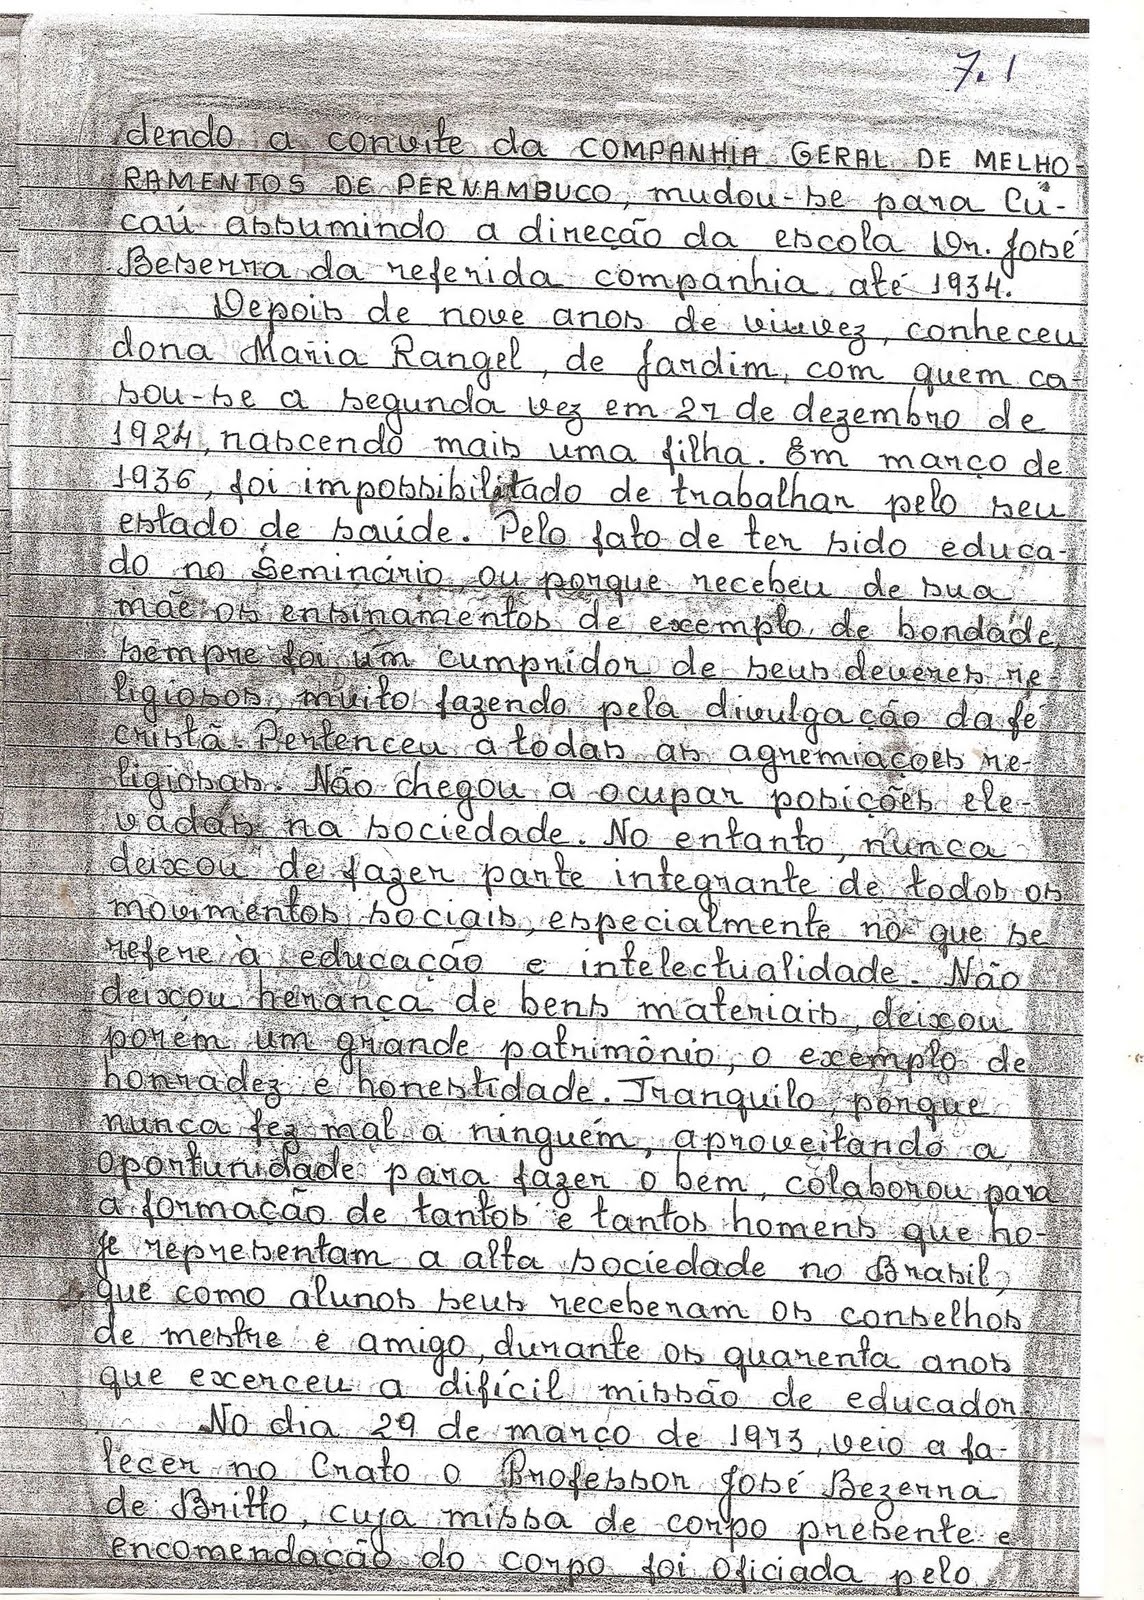 7.1
dendo a convite da COMPANHIA GERAL DE MELHO-
RAMENTOS DE PERNAMBUCO, mudou-se para Cú-
caú assumindo a direção da escola Dr. José
Beserra da referida companhia até 1934.
Depois de nove anos de viuvez, conheceu
dona Maria Rangel, de Jardim, com quem ca-
sou-se a segunda vez em 27 de dezembro de
1924, nascendo mais uma filha. Em março de
1936, foi impossibilitado de trabalhar pelo seu
estado de saúde. Pelo fato de ter sido educa-
do no Seminário, ou porque recebeu de sua
mãe os ensinamentos de exemplo, de bondade,
sempre foi um cumpridor de seus deveres re-
ligiosos, muito fazendo pela divulgação da fé
cristã. Pertenceu a todas as agremiações re-
ligiosas. Não chegou a ocupar posições ele-
vadas na sociedade. No entanto, nunca
deixou de fazer parte integrante de todos os
movimentos sociais, especialmente no que se
refere à educação e intelectualidade. Não
deixou herança de bens materiais, deixou
porém um grande patrimônio, o exemplo de
honradez e honestidade. Tranquilo, porque
nunca fez mal a ninguém, aproveitando a
oportunidade para fazer o bem, colaborou para
a formação de tantos e tantos homens que ho-
je representam a alta sociedade no Brasil,
que como alunos seus receberam os conselhos
de mestre e amigo, durante os quarenta anos
que exerceu a difícil missão de educador.
No dia 29 de março de 1973, veio a fa-
lecer no Crato o Professor José Bezerra
de Britto, cuja missa de corpo presente e
encomendação do corpo foi oficiada pelo